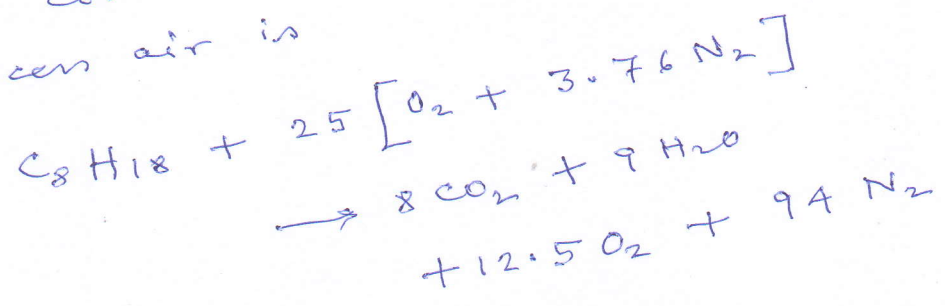 cess air is
C8 H18 + 25 [O2 + 3.76 N2]
→ 8 CO2 + 9 H2O
+ 12.5 O2 + 94 N2